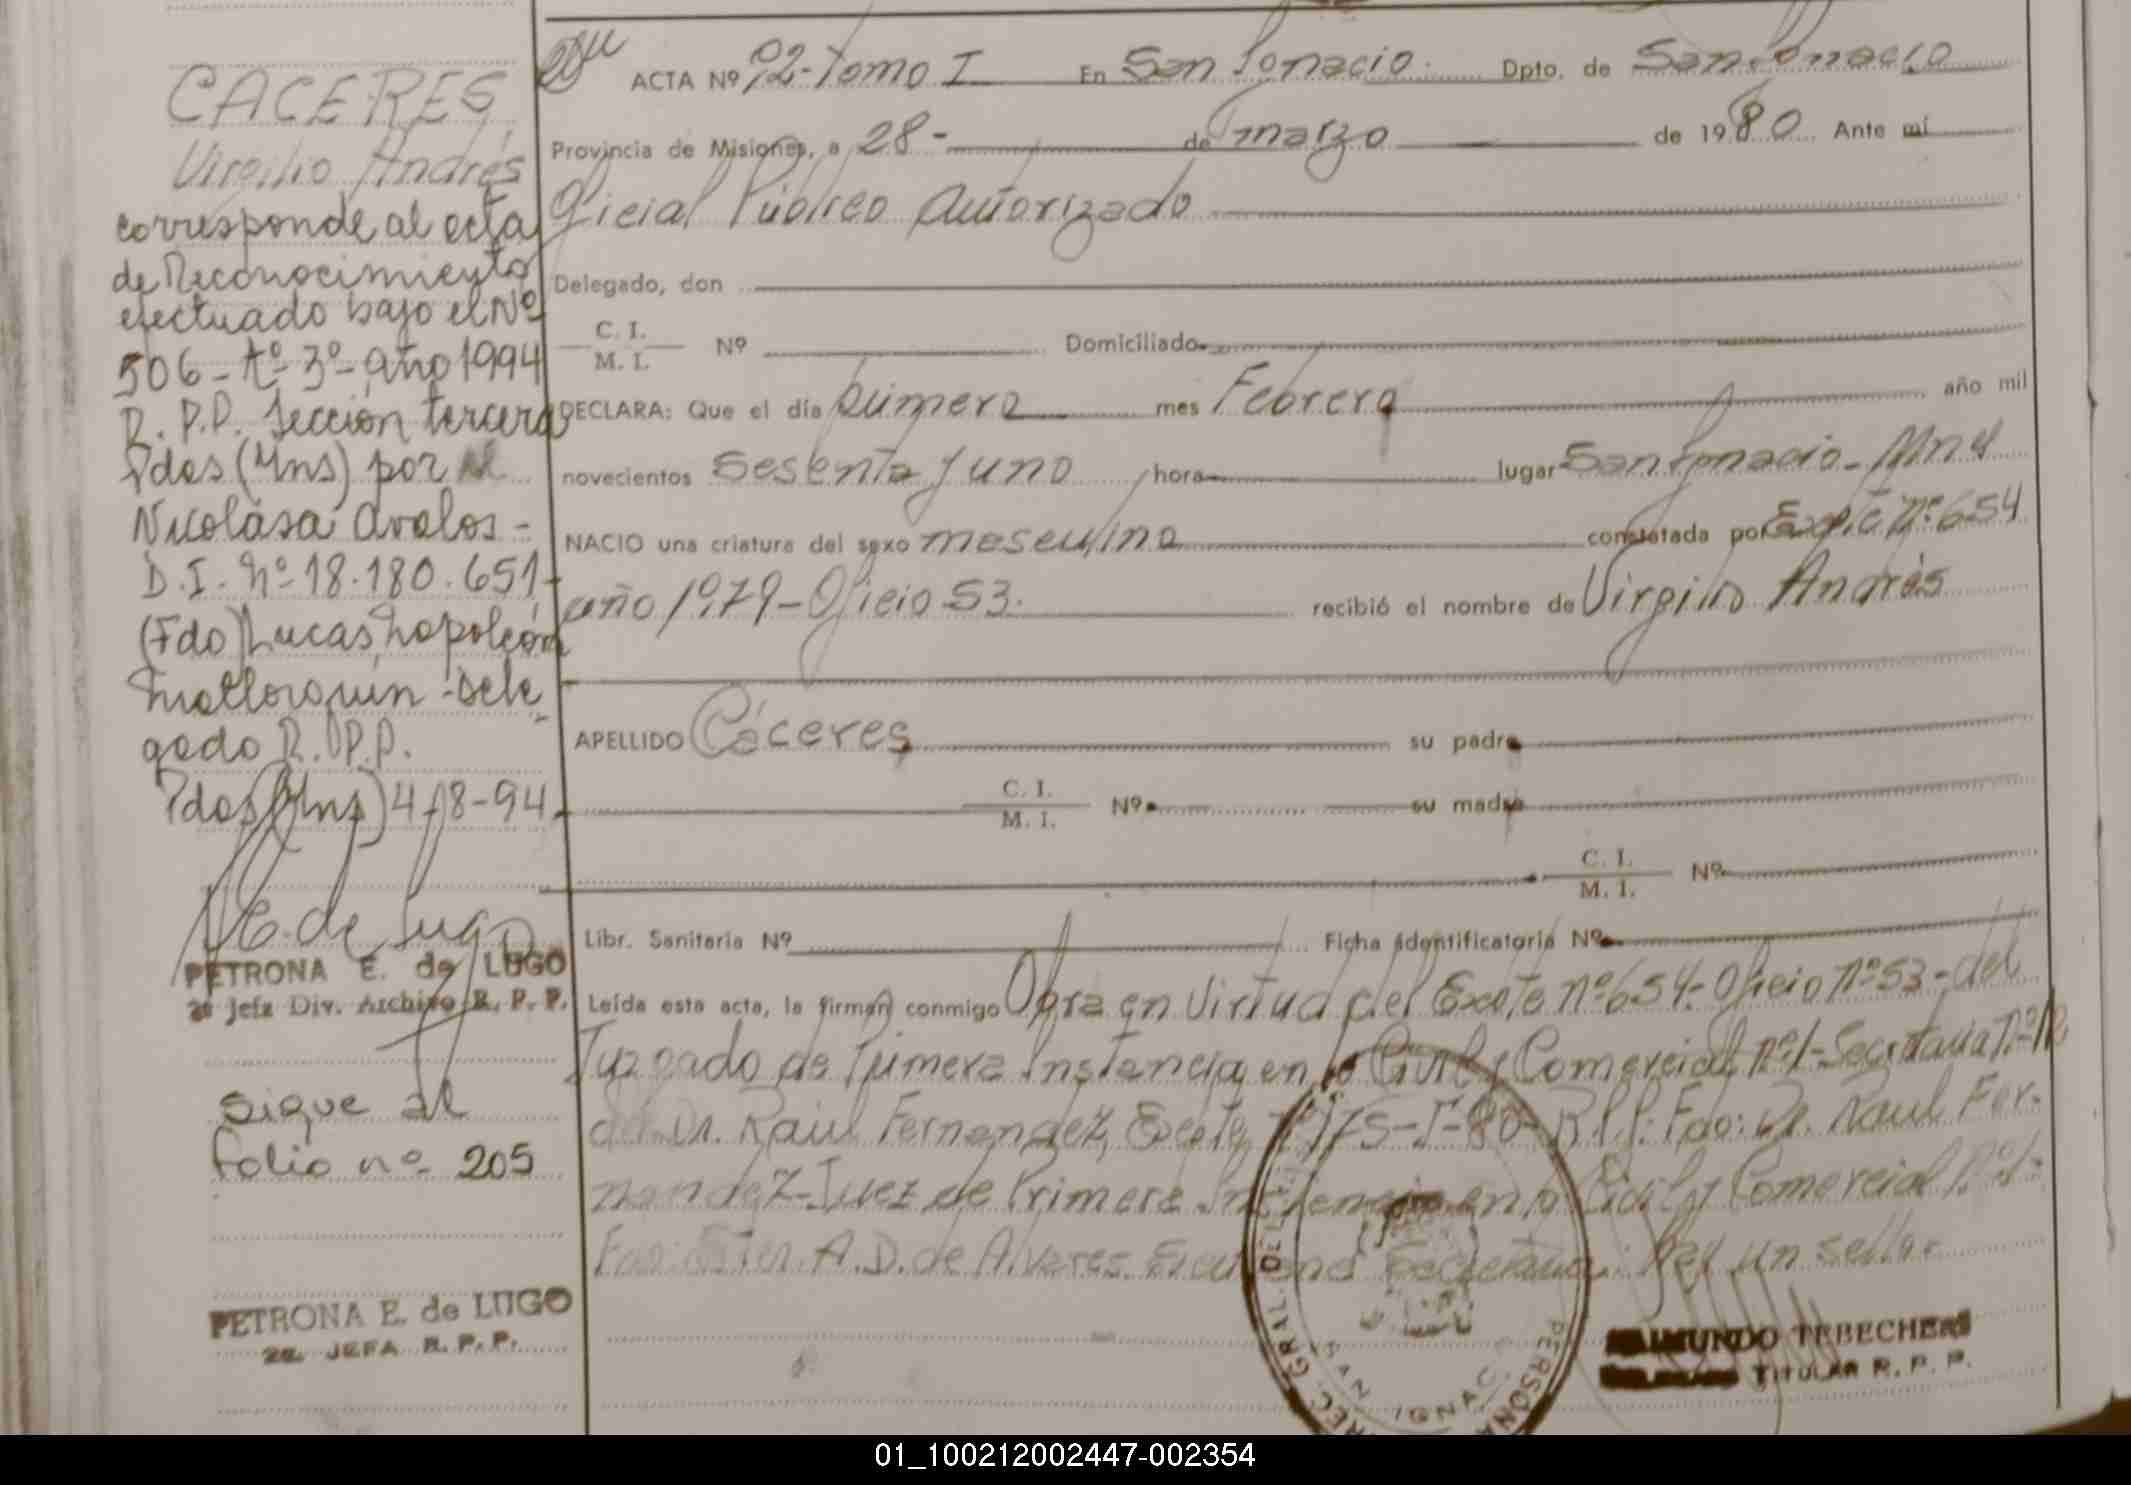 CACERES
Virgilio Andrés
corresponde al acta
de Reconocimiento
efectuado bajo el Nº
506 - tº 3º - año 1994
R. P.P. Sección tercera
Pdas (Mns) por
Nicolasa Avalos -
D.I. Nº 18.180.651
(Fdo) Lucas Napoleón
Mallorquin - Dele
gado R.P.P.
Pdas (Mns) 4-8-94
E. de Lugo
PETRONA E. de LUGO
2ª Jefa Div. Archivo R. P. P.
Sigue al
folio nº 205
PETRONA E. de LUGO
2a. JEFA R. P. P.
ACTA Nº 92 - Tomo I En San Ignacio Dpto. de San Ignacio
Provincia de Misiones, a 28 - de marzo de 1980 Ante mí
Oficial Público Autorizado
Delegado, don
C. I.
M. I. Nº Domiciliado
DECLARA: Que el día primero mes Febrero año mil
novecientos Sesenta y uno hora lugar San Ignacio - Mnes
NACIO una criatura del sexo masculino constatada por Expte Nº 654
año 1979 - Oficio 53. recibió el nombre de Virgilio Andrés
APELLIDO Cáceres su padre
C. I.
M. I. Nº su madre
C. I.
M. I. Nº
Libr. Sanitaria Nº Ficha Identificatoria Nº
Leída esta acta, la firman conmigo Obra en Virtud del Expte Nº 654 - Oficio Nº 53 - del
Juzgado de Primera Instancia en lo Civil y Comercial nº 1 - Secretaria Nº
del Dr. Raúl Fernandez, Expte 175-I-80 - R.P.P. Fdo: Dr. Raúl Fer-
nandez - Juez de Primera Instancia en lo Civil y Comercial Nº 1 -
A.D. de Alvares Secretaria. Hay un sello.
DEL
REC. GRAL.
SAN IGNAC
PERSONA
RAIMUNDO TEBECHERI
TITULAR R. P. P.
01_100212002447-002354